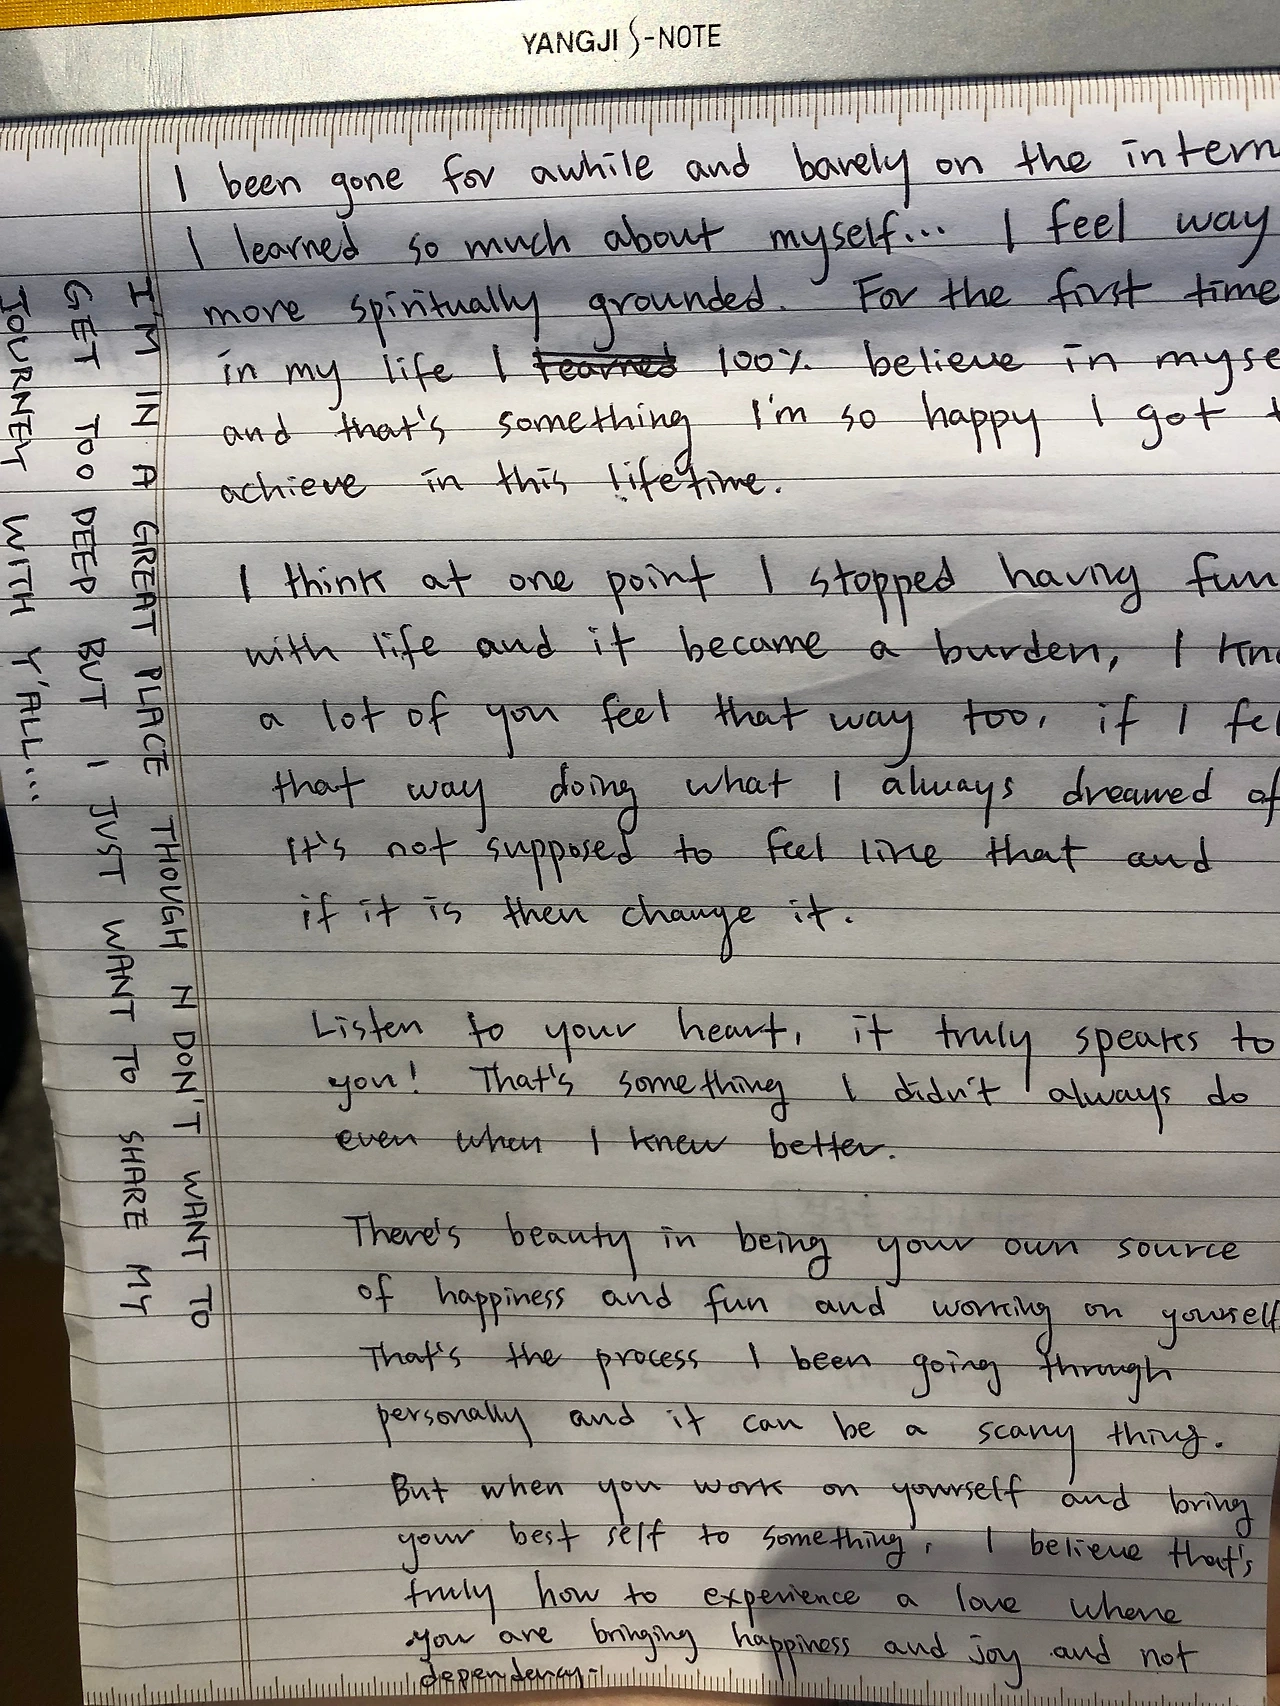 YANGJI S-NOTE
I been gone for awhile and barely on the intern
I learned so much about myself... I feel way
more spiritually grounded. For the first time
in my life I learned 100% believe in myse
and that's something I'm so happy I got t
achieve in this lifetime.
I think at one point I stopped having fun
with life and it became a burden, I kno
a lot of you feel that way too, if I fel
that way doing what I always dreamed of
it's not supposed to feel like that and
if it is then change it.
Listen to your heart, it truly speaks to
you! That's something I didn't always do
even when I knew better.
There's beauty in being your own source
of happiness and fun and working on yourself
That's the process I been going through
personally and it can be a scary thing.
But when you work on yourself and bring
your best self to something, I believe that's
truly how to experience a love where
you are bringing happiness and joy and not
dependency-
I'M IN A GREAT PLACE THOUGH N DON'T WANT TO
GET TOO DEEP BUT I JUST WANT TO SHARE MY
JOURNEY WITH Y'ALL...